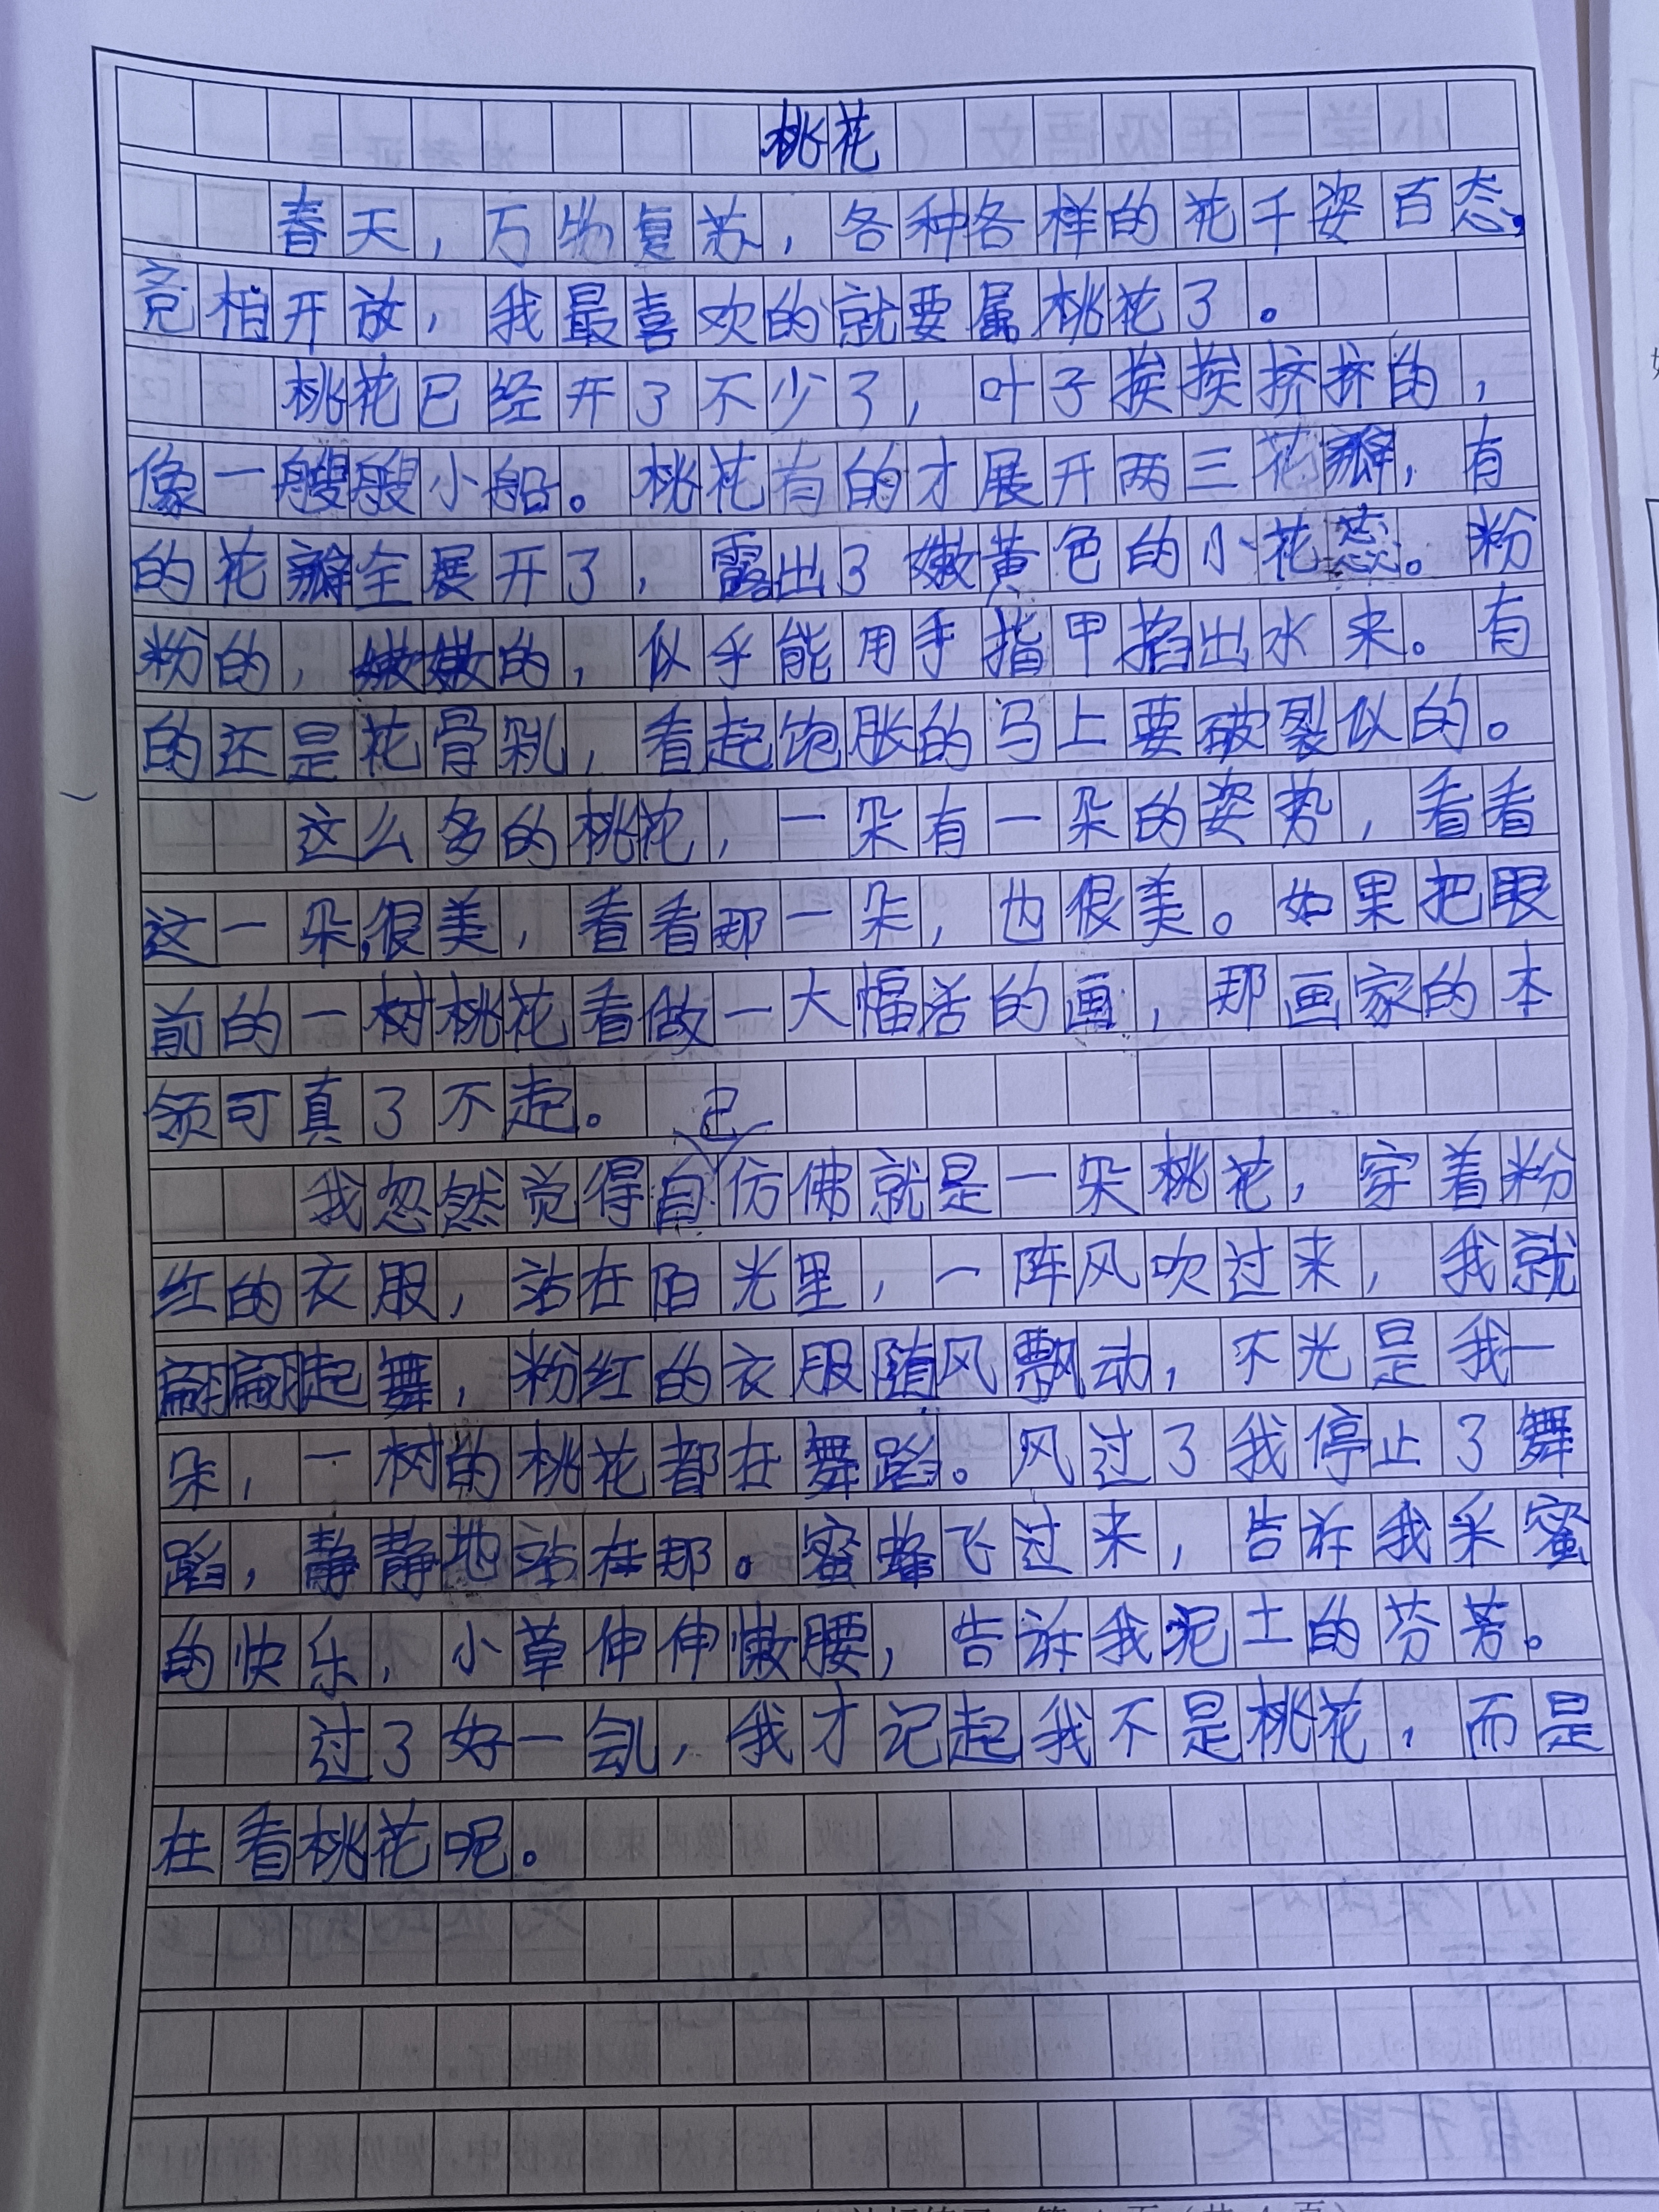 桃花
春天，万物复苏，各种各样的花千姿百态，
竞相开放，我最喜欢的就要属桃花了。
桃花已经开了不少了，叶子挨挨挤挤的，
像一艘艘小船。桃花有的才展开两三花瓣，有
的花瓣全展开了，露出了嫩黄色的小花蕊。粉
粉的，嫩嫩的，似乎能用手指甲掐出水来。有
的还是花骨朵儿，看起饱胀的马上要破裂似的。
这么多的桃花，一朵有一朵的姿势，看看
这一朵，很美，看看那一朵，也很美。如果把眼
前的一树桃花看做一大幅活的画，那画家的本
领可真了不起。
我忽然觉得自己仿佛就是一朵桃花，穿着粉
红的衣服，站在阳光里，一阵风吹过来，我就
翩翩起舞，粉红的衣服随风飘动，不光是我一
朵，一树的桃花都在舞蹈。风过了我停止了舞
蹈，静静地站在那。蜜蜂飞过来，告诉我采蜜
的快乐，小草伸伸懒腰，告诉我泥土的芬芳。
过了好一会儿，我才记起我不是桃花，而是
在看桃花呢。